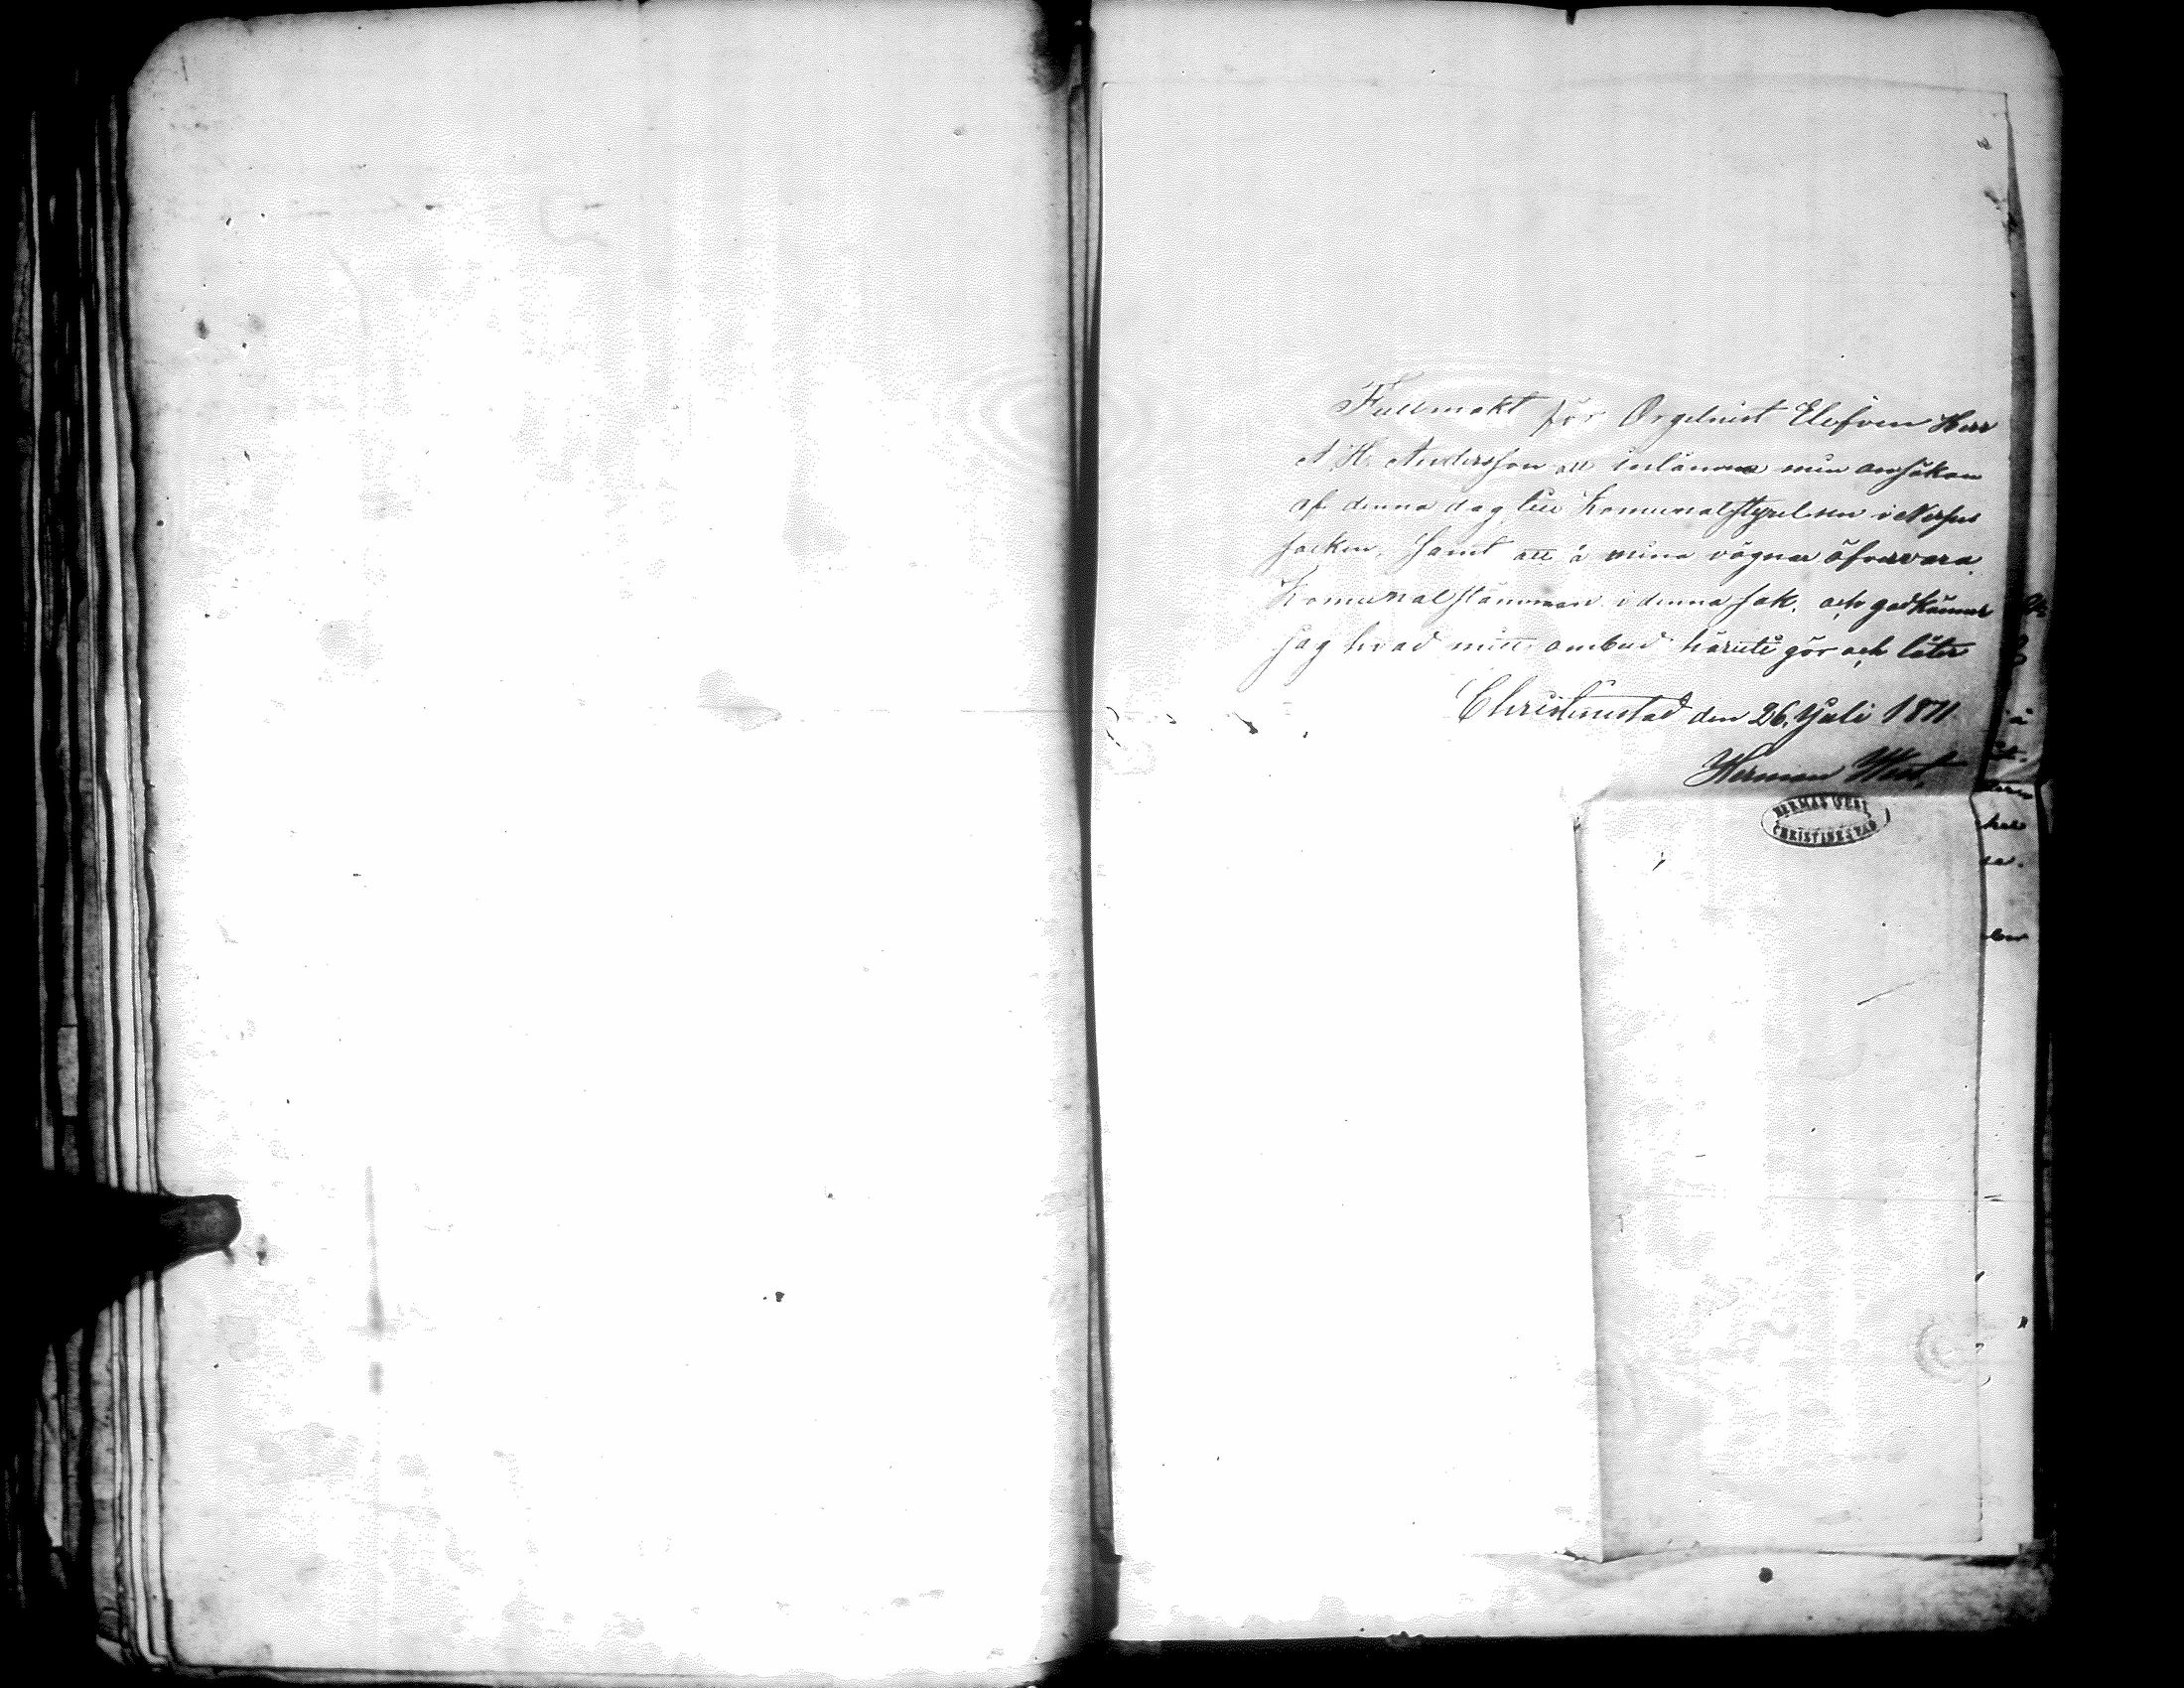 Fullmakt för Orgelnist Eleven Herr
A. H. Andersson att inlämna min ansökan
af denna dag till Komunalstyrelsen i Nerpes
socken, samt att å mina vägnar öfvervara
Komunalstämman i denna sak, och godkänner
jag hvad mitt ombud häruti gör och låter
Christinestad den 26. Juli 1871.
Herman West.
HERMAN WEST
CHRISTINESTAD